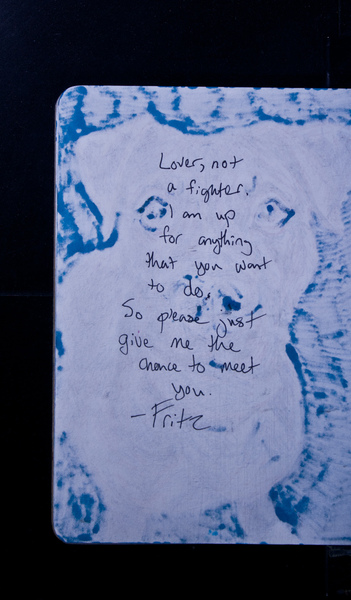 Lover, not
a fighter.
I am up
for anything
that you want
to do.
So please just
give me the
chance to meet
you.
-Fritz